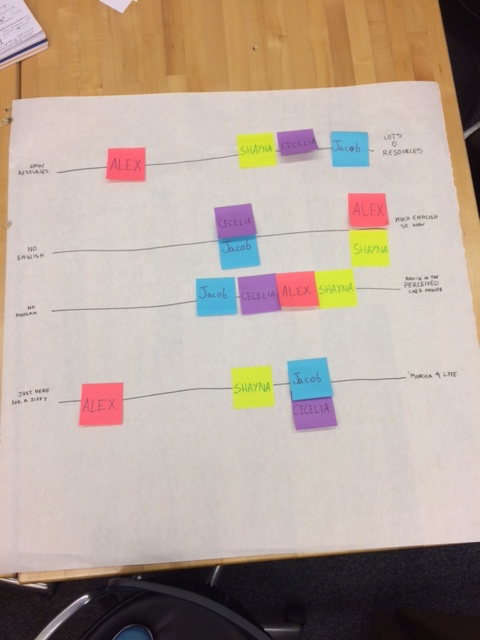 NAW
RESOURCES
ALEX
SHAYNA
CECELIA
Jacob
LOTS
O
RESOURCES
NO
ENGLISH
CECELIA
Jacob
ALEX
SHAYNA
MUCH ENGLISH
SO WOW
NO
Jacob
CECELIA
ALEX
SHAYNA
PERCEIVED
JUST HERE
FOR A JIFFY
ALEX
SHAYNA
Jacob
CECELIA
'MURICA 4 LYFE